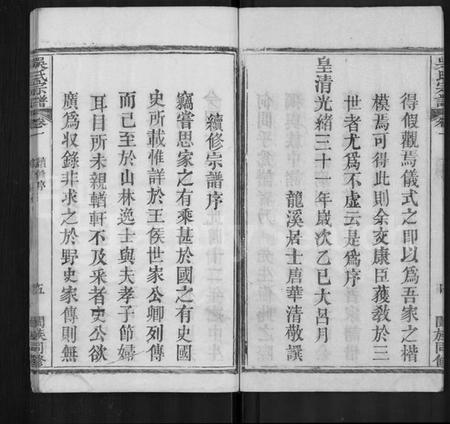 得假觀焉儀式之即以爲吾家之楷
模焉可得此則余交康臣獲教於三
世者尤爲不虛云是爲序
皇清光緒三十一年歲次乙巳大呂月
龍溪居士唐華清敬譔
吳氏宗譜
卷一
續修序
五
闔族同修
續修宗譜序
竊嘗思家之有乘甚於國之有史國
史所載惟詳於王侯世家公卿列傳
而已至於山林逸士與夫孝子節婦
耳目所未親輶軒不及采者史公欲
廣爲收錄非求之於野史家傳則無